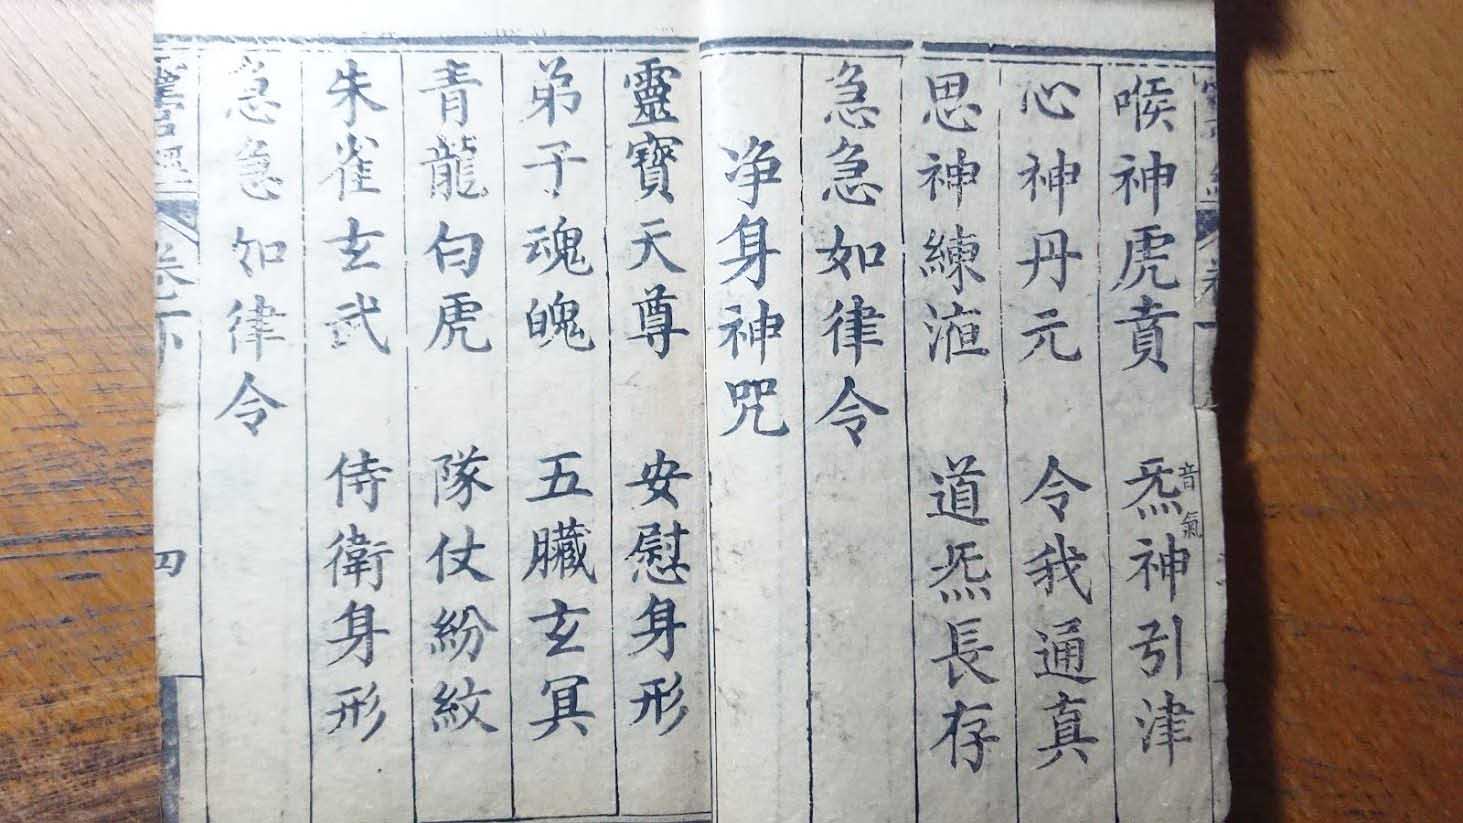 喉神虎賁 炁音氣神引津
心神丹元 令我通真
思神練洰 道炁長存
急急如律令
净身神咒
靈寶天尊 安慰身形
弟子魂魄 五臟玄冥
青龍白虎 隊仗紛紋
朱雀玄武 侍衛身形
急急如律令
卷下 四